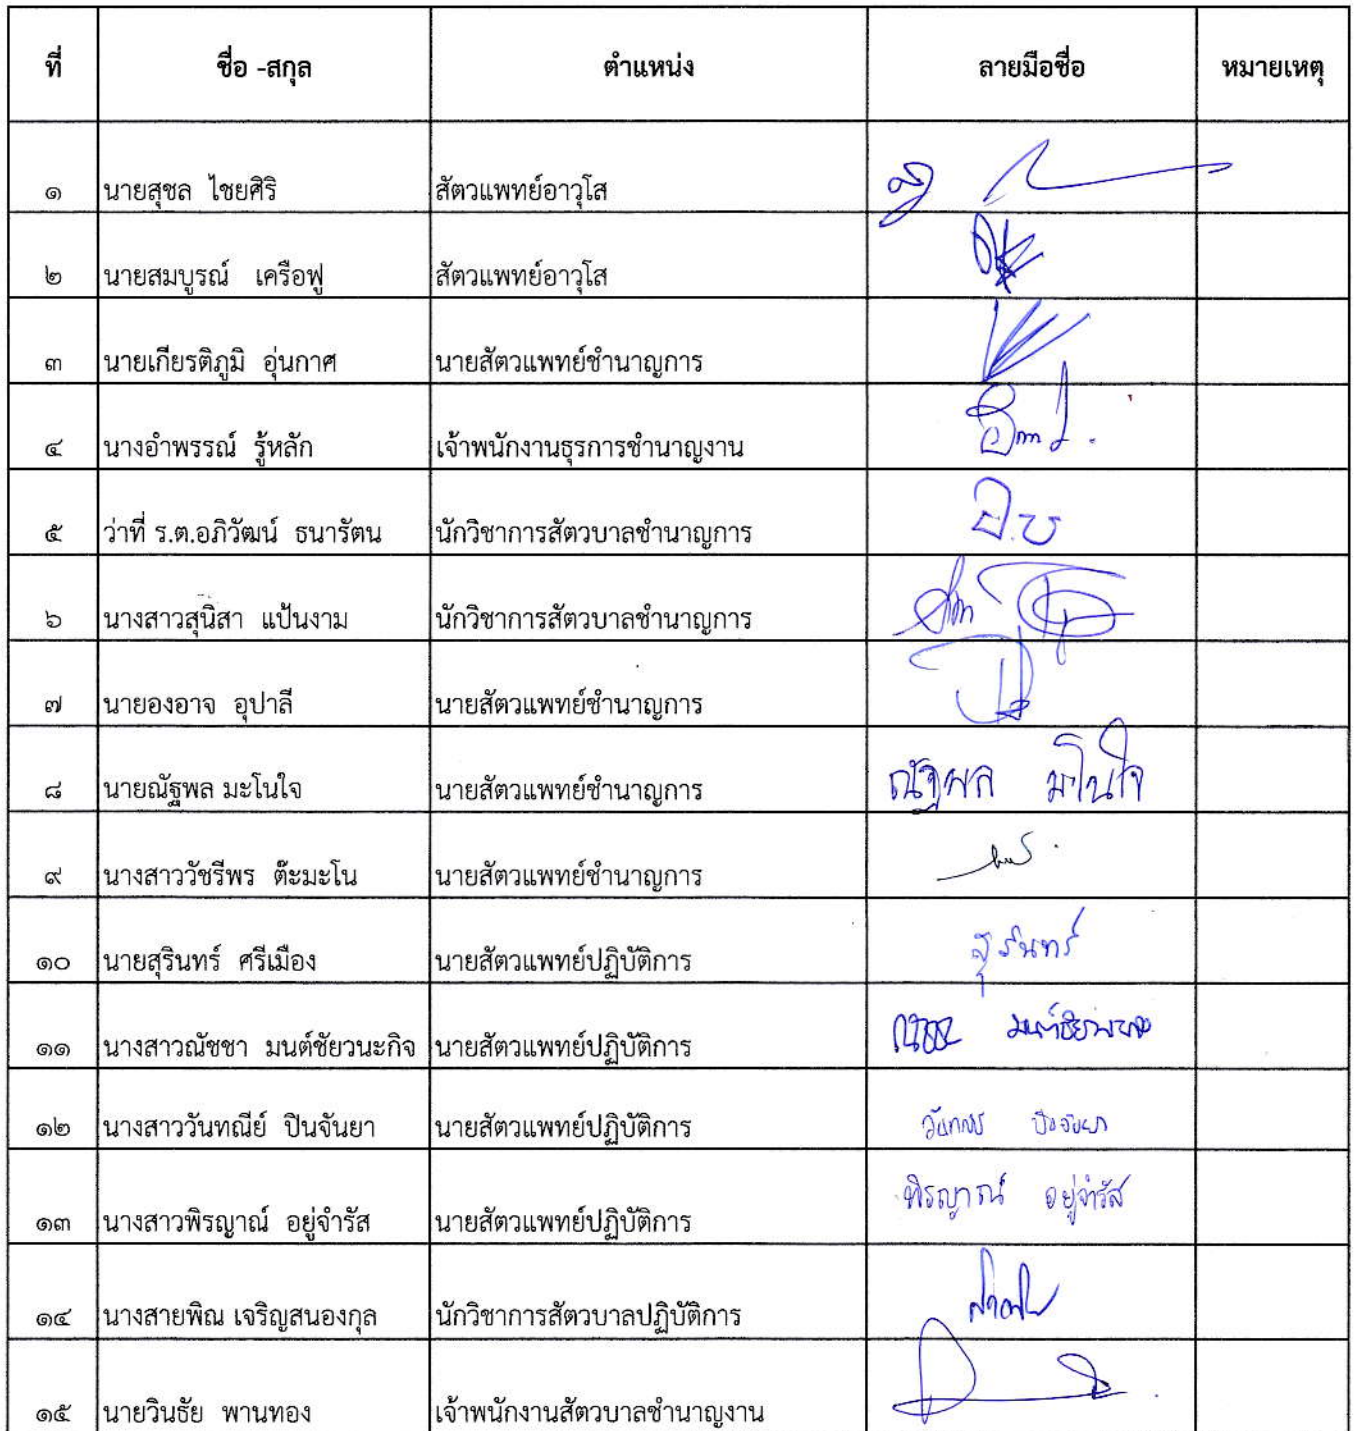 ที่ ชื่อ -สกุล ตำแหน่ง ลายมือชื่อ หมายเหตุ
๑ นายสุชล ไชยศิริ สัตวแพทย์อาวุโส
๒ นายสมบูรณ์ เครือฟู สัตวแพทย์อาวุโส
๓ นายเกียรติภูมิ อุ่นกาศ นายสัตวแพทย์ชำนาญการ
๔ นางอำพรรณ์ รู้หลัก เจ้าพนักงานธุรการชำนาญงาน
๕ ว่าที่ ร.ต.อภิวัฒน์ ธนารัตน นักวิชาการสัตวบาลชำนาญการ
๖ นางสาวสุนิสา แป้นงาม นักวิชาการสัตวบาลชำนาญการ
๗ นายองอาจ อุปาลี นายสัตวแพทย์ชำนาญการ
๘ นายณัฐพล มะโนใจ นายสัตวแพทย์ชำนาญการ ณัฐพล มะโนใจ
๙ นางสาววัชรีพร ต๊ะมะโน นายสัตวแพทย์ชำนาญการ
๑๐ นายสุรินทร์ ศรีเมือง นายสัตวแพทย์ปฏิบัติการ สุรินทร์
๑๑ นางสาวณัชชา มนต์ชัยวนะกิจ นายสัตวแพทย์ปฏิบัติการ
๑๒ นางสาววันทณีย์ ปินจันยา นายสัตวแพทย์ปฏิบัติการ
๑๓ นางสาวพิรญาณ์ อยู่จำรัส นายสัตวแพทย์ปฏิบัติการ พิรญาณ์ อยู่จำรัส
๑๔ นางสายพิณ เจริญสนองกุล นักวิชาการสัตวบาลปฏิบัติการ
๑๕ นายวินธัย พานทอง เจ้าพนักงานสัตวบาลชำนาญงาน